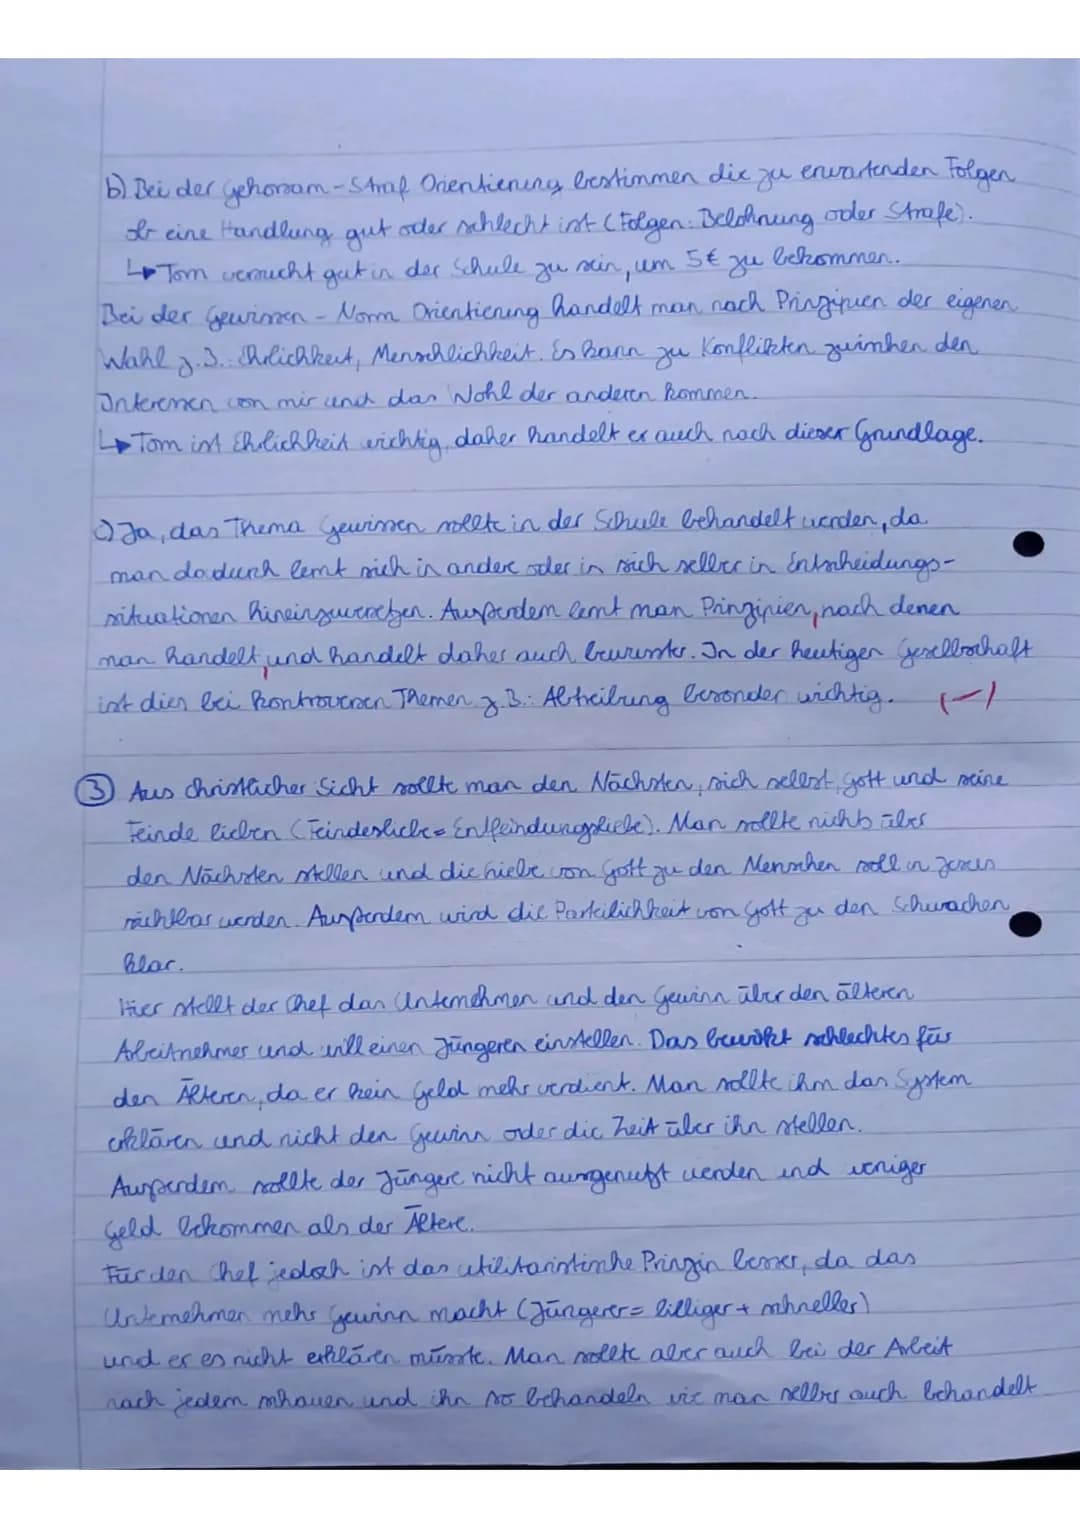 b) Bei der Gehorsam-Straf Orientierung bestimmen die zu erwartenden Folgen
ob eine Handlung gut oder schlecht ist (Folgen: Belohnung oder Strafe).
↳ Tom versucht gut in der Schule zu sein, um 5€ zu bekommen.
Bei der Gewissen-Norm Orientierung handelt man nach Prinzipien der eigenen
Wahl z.B.: Ehrlichkeit, Menschlichkeit. Es kann zu Konflikten zwischen den
Interessen von mir und das Wohl der anderen kommen.
↳ Tom ist Ehrlichkeit wichtig, daher handelt er auch nach dieser Grundlage.
c) Ja, das Thema Gewissen sollte in der Schule behandelt werden, da
man dadurch lernt sich in andere oder in sich selber in Entscheidungs-
situationen hineinzuversetzen. Außerdem lernt man Prinzipien, nach denen
man handelt, und handelt daher auch bewusster. In der heutigen Gesellschaft
ist dies bei kontroversen Themen z.B.: Abtreibung besonder wichtig. (-)
③ Aus christlicher Sicht sollte man den Nächsten, sich selbst, Gott und seine
Feinde lieben (Feindesliebe = Entfeindungsliebe). Man sollte nichts über
den Nächsten stellen und die Liebe von Gott zu den Menschen soll in Jesus
sichtbar werden. Außerdem wird die Parteilichkeit von Gott zu den Schwachen
klar.
Hier stellt der Chef das Unternehmen und den Gewinn über den älteren
Arbeitnehmer und will einen Jüngeren einstellen. Das bewirkt schlechtes für
den Älteren, da er kein Geld mehr verdient. Man sollte ihm das System
erklären und nicht den Gewinn oder die Zeit über ihn stellen.
Außerdem sollte der Jüngere nicht ausgenutzt werden und weniger
Geld bekommen als der Ältere.
Für den Chef jedoch ist das utilitaristische Prinzip besser, da das
Unternehmen mehr Gewinn macht (Jüngerer = billiger + schneller)
und er es nicht erklären müsste. Man sollte aber auch bei der Arbeit
nach jedem schauen und ihn so behandeln wie man selber auch behandelt